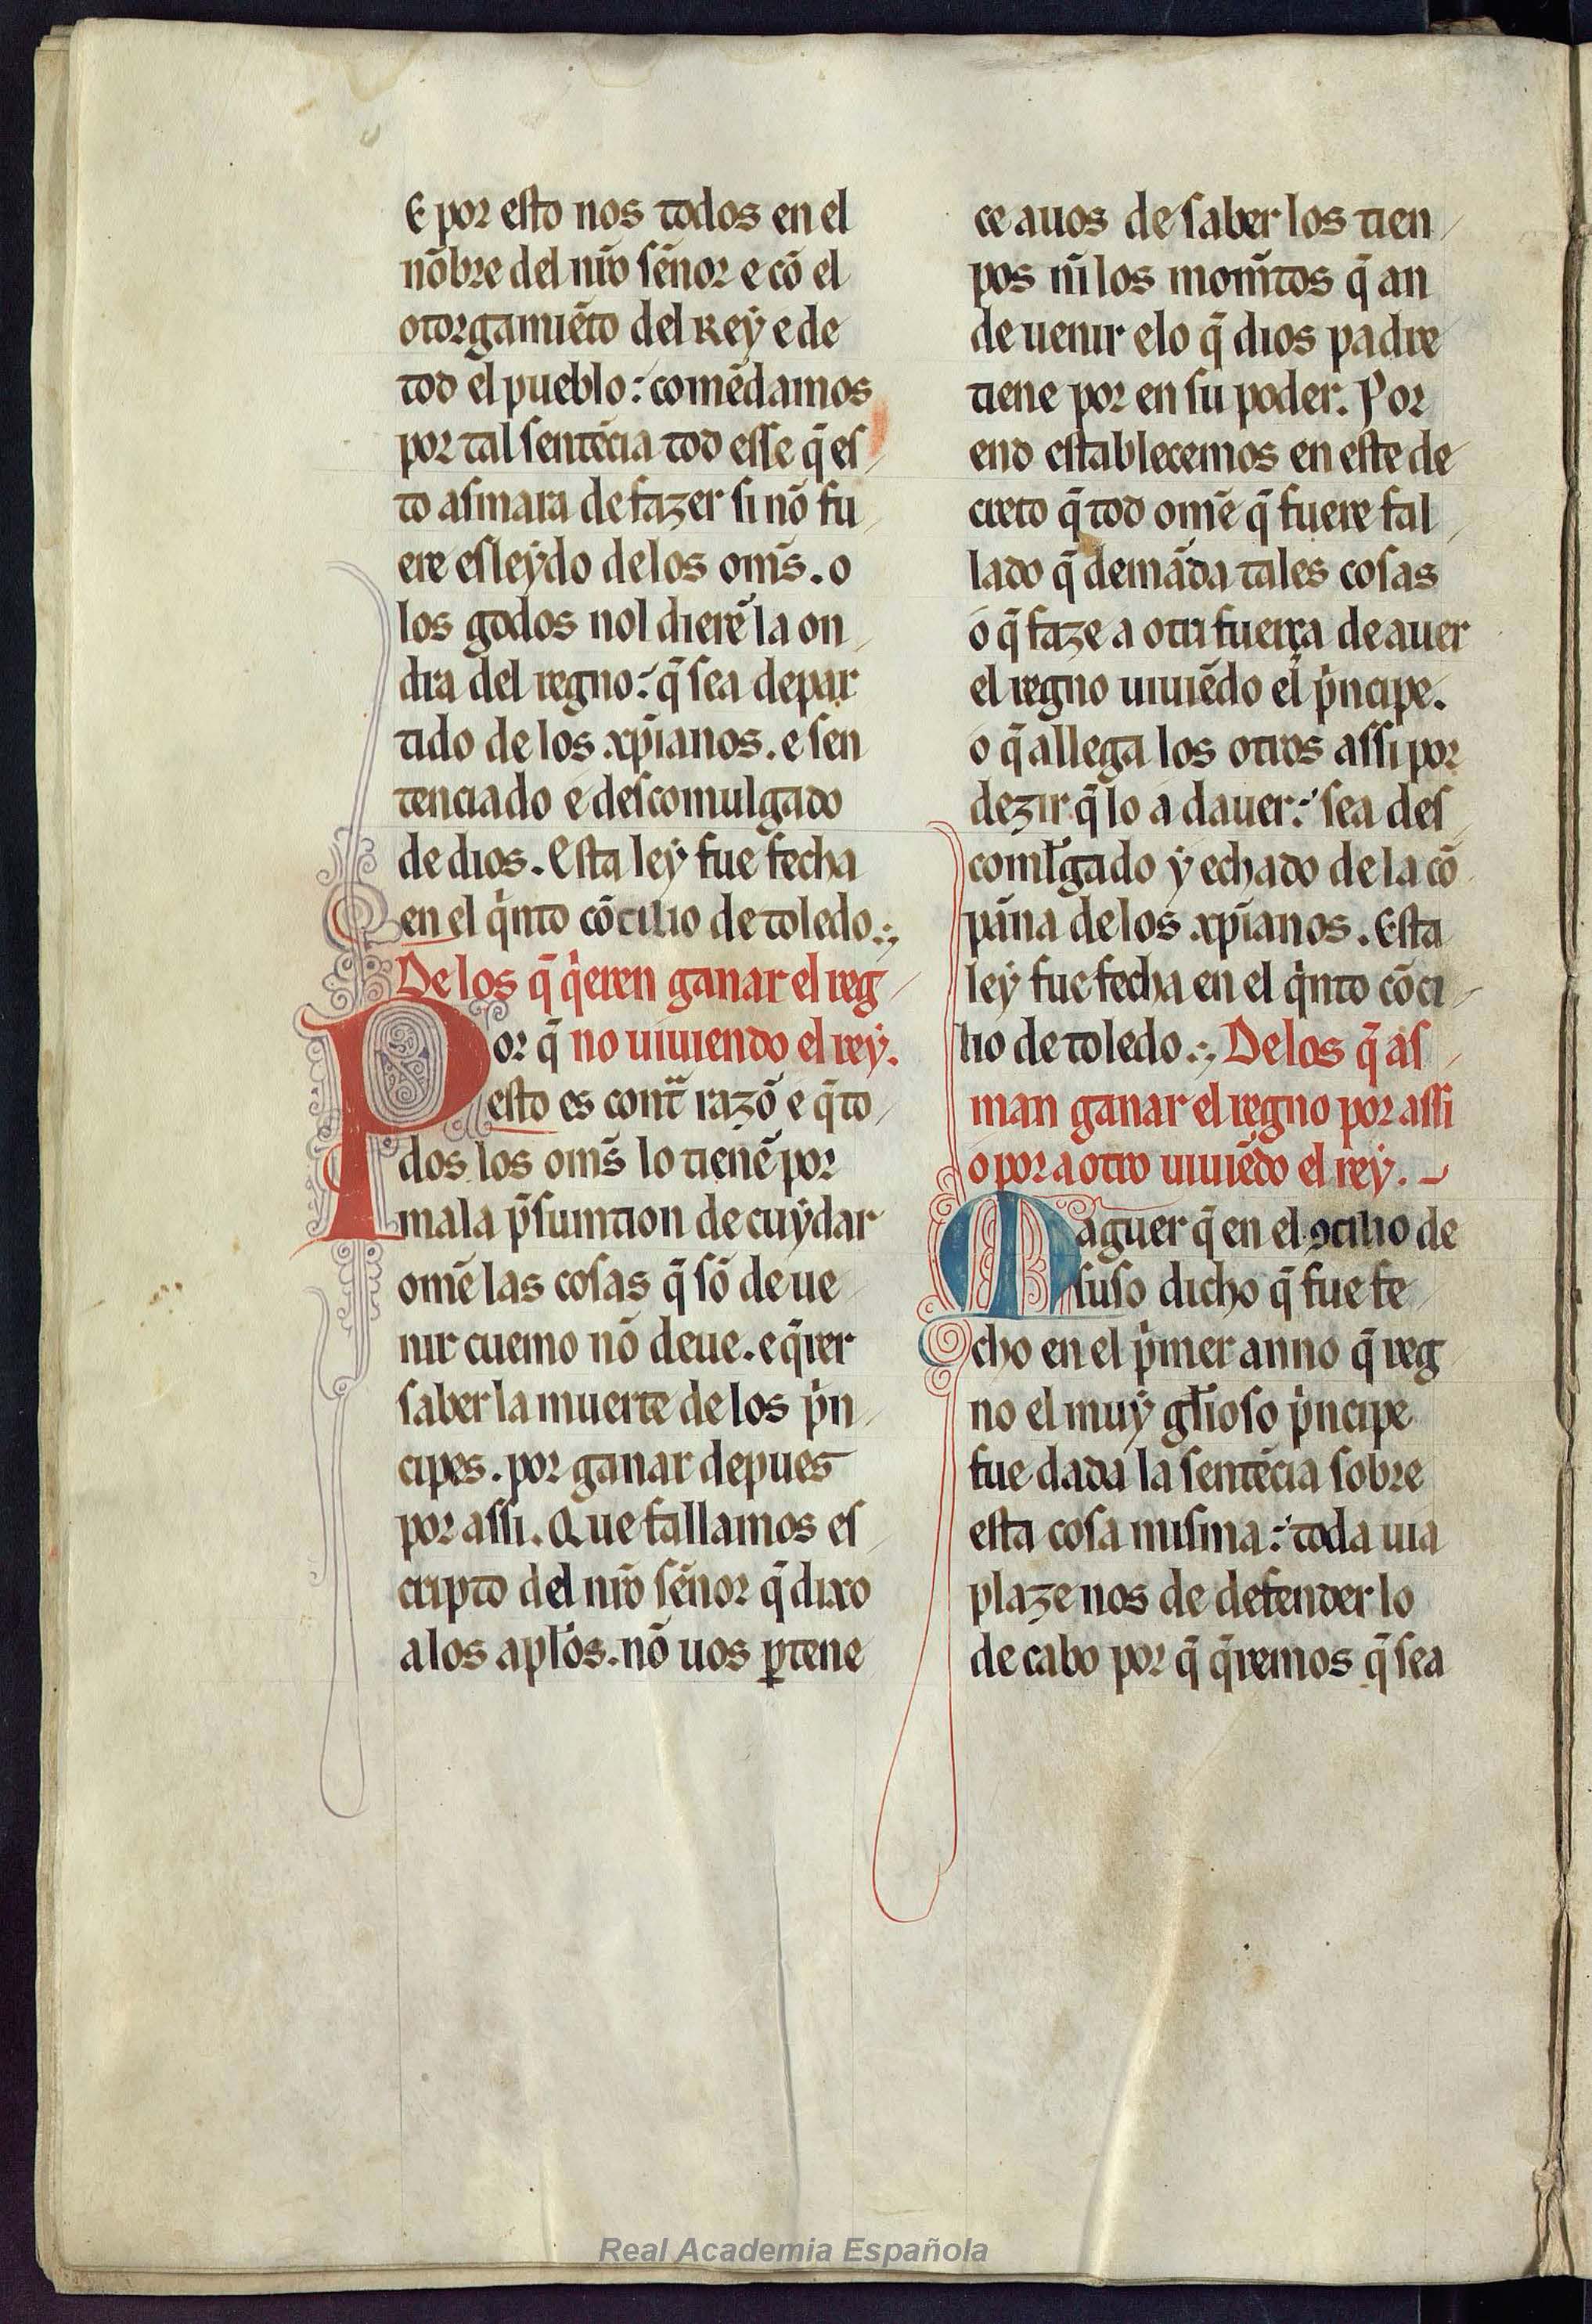 E por esto nos todos en el
nõbre del nr̃o señor e cõ el
otorgamiẽto del Rey e de
tod el pueblo: comẽdamos
por tal sentẽcia tod esse q̃ es
to asmara de fazer si nõ fu
ere esleydo de los om̃s. o
los godos nol dierẽ la on
dra del regno: q̃ sea depar
tido de los xp̃ianos. e sen
tenciado e descomulgado
de dios. Esta ley fue fecha
en el q̇nto cõcilio de toledo.
De los q̃ q̇eren ganar el reg
Por q̃ no uiuiendo el rey.
esto es cont̃ razõ e q̃ to
dos los om̃s lo tienẽ por
mala p̃sumtion de cuydar
omẽ las cosas q̃ sõ de ue
nir cuemo nõ deue. e q̃rer
saber la muerte de los ṗn
cipes. por ganar depues
por assi. Que fallamos es
cripto del nr̃o señor q̃ dixo
a los apl̃os. nõ uos ꝑtene
ce auos de saber los tien
pos nĩ los momt̃os q̃ an
de uenir e lo q̃ dios padre
tiene por en su poder. Por
end establecemos en este de
creto q̃ tod omẽ q̃ fuere fal
lado q̃ demãda tales cosas
o q̃ faze a otri fuerça de auer
el regno uiuiẽdo el ṗncipe.
o q̃ allega los otros assi por
dezir q̃ lo a dauer: sea des
coml̃gado y echado de la cõ
pãna de los xp̃ianos. Esta
ley fue fecha en el q̇nto cõci
lio de toledo. De los q̃ as
man ganar el regno por assi
o por a otro uiuiẽdo el rey.
Maguer q̃ en el ꝯcilio de
suso dicho q̃ fue fe
cho en el ṗmer anno q̃ reg
no el muy gl̃ioso ṗncipe
fue dada la sentẽcia sobre
esta cosa misma: toda uia
plaze nos de defender lo
de cabo por q̃ q̃remos q̃ sea
Real Academia Española